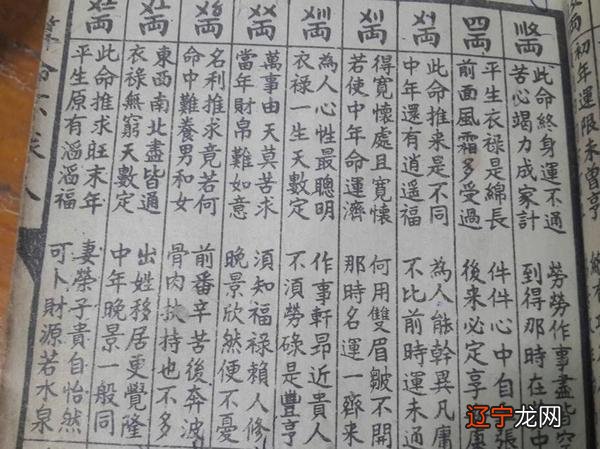 初年運限未曾亨
此命終身運不通 勞勞作事盡皆空
苦心竭力成家計 到得那時在 中
四両
平生衣祿是綿長 件件心中自 張
前面風霜多受過 後來必定享
此命推来是不同 為人能幹異凡庸
中年還有逍遥福 不比前時運未通
得寬懷處且寬懷 何用雙眉皺不開
若使中年命運濟 那時名運一齊来
為人心性最聰明 作事軒昂近貴人
衣祿一生天數定 不須勞碌是豐亨
萬事由天莫苦求 須知福祿賴人修
當年財帛難如意 晚景欣然便不憂
名利推求竟若何 前番辛苦後奔波
命中難養男和女 骨肉扶持也不多
東西南北盡皆通 出姓移居更覺隆
衣祿無窮天數定 中年晚景一般同
此命推求旺末年 妻榮子貴自怡然
平生原有滔滔福 可卜財源若水泉
辽宁龙网